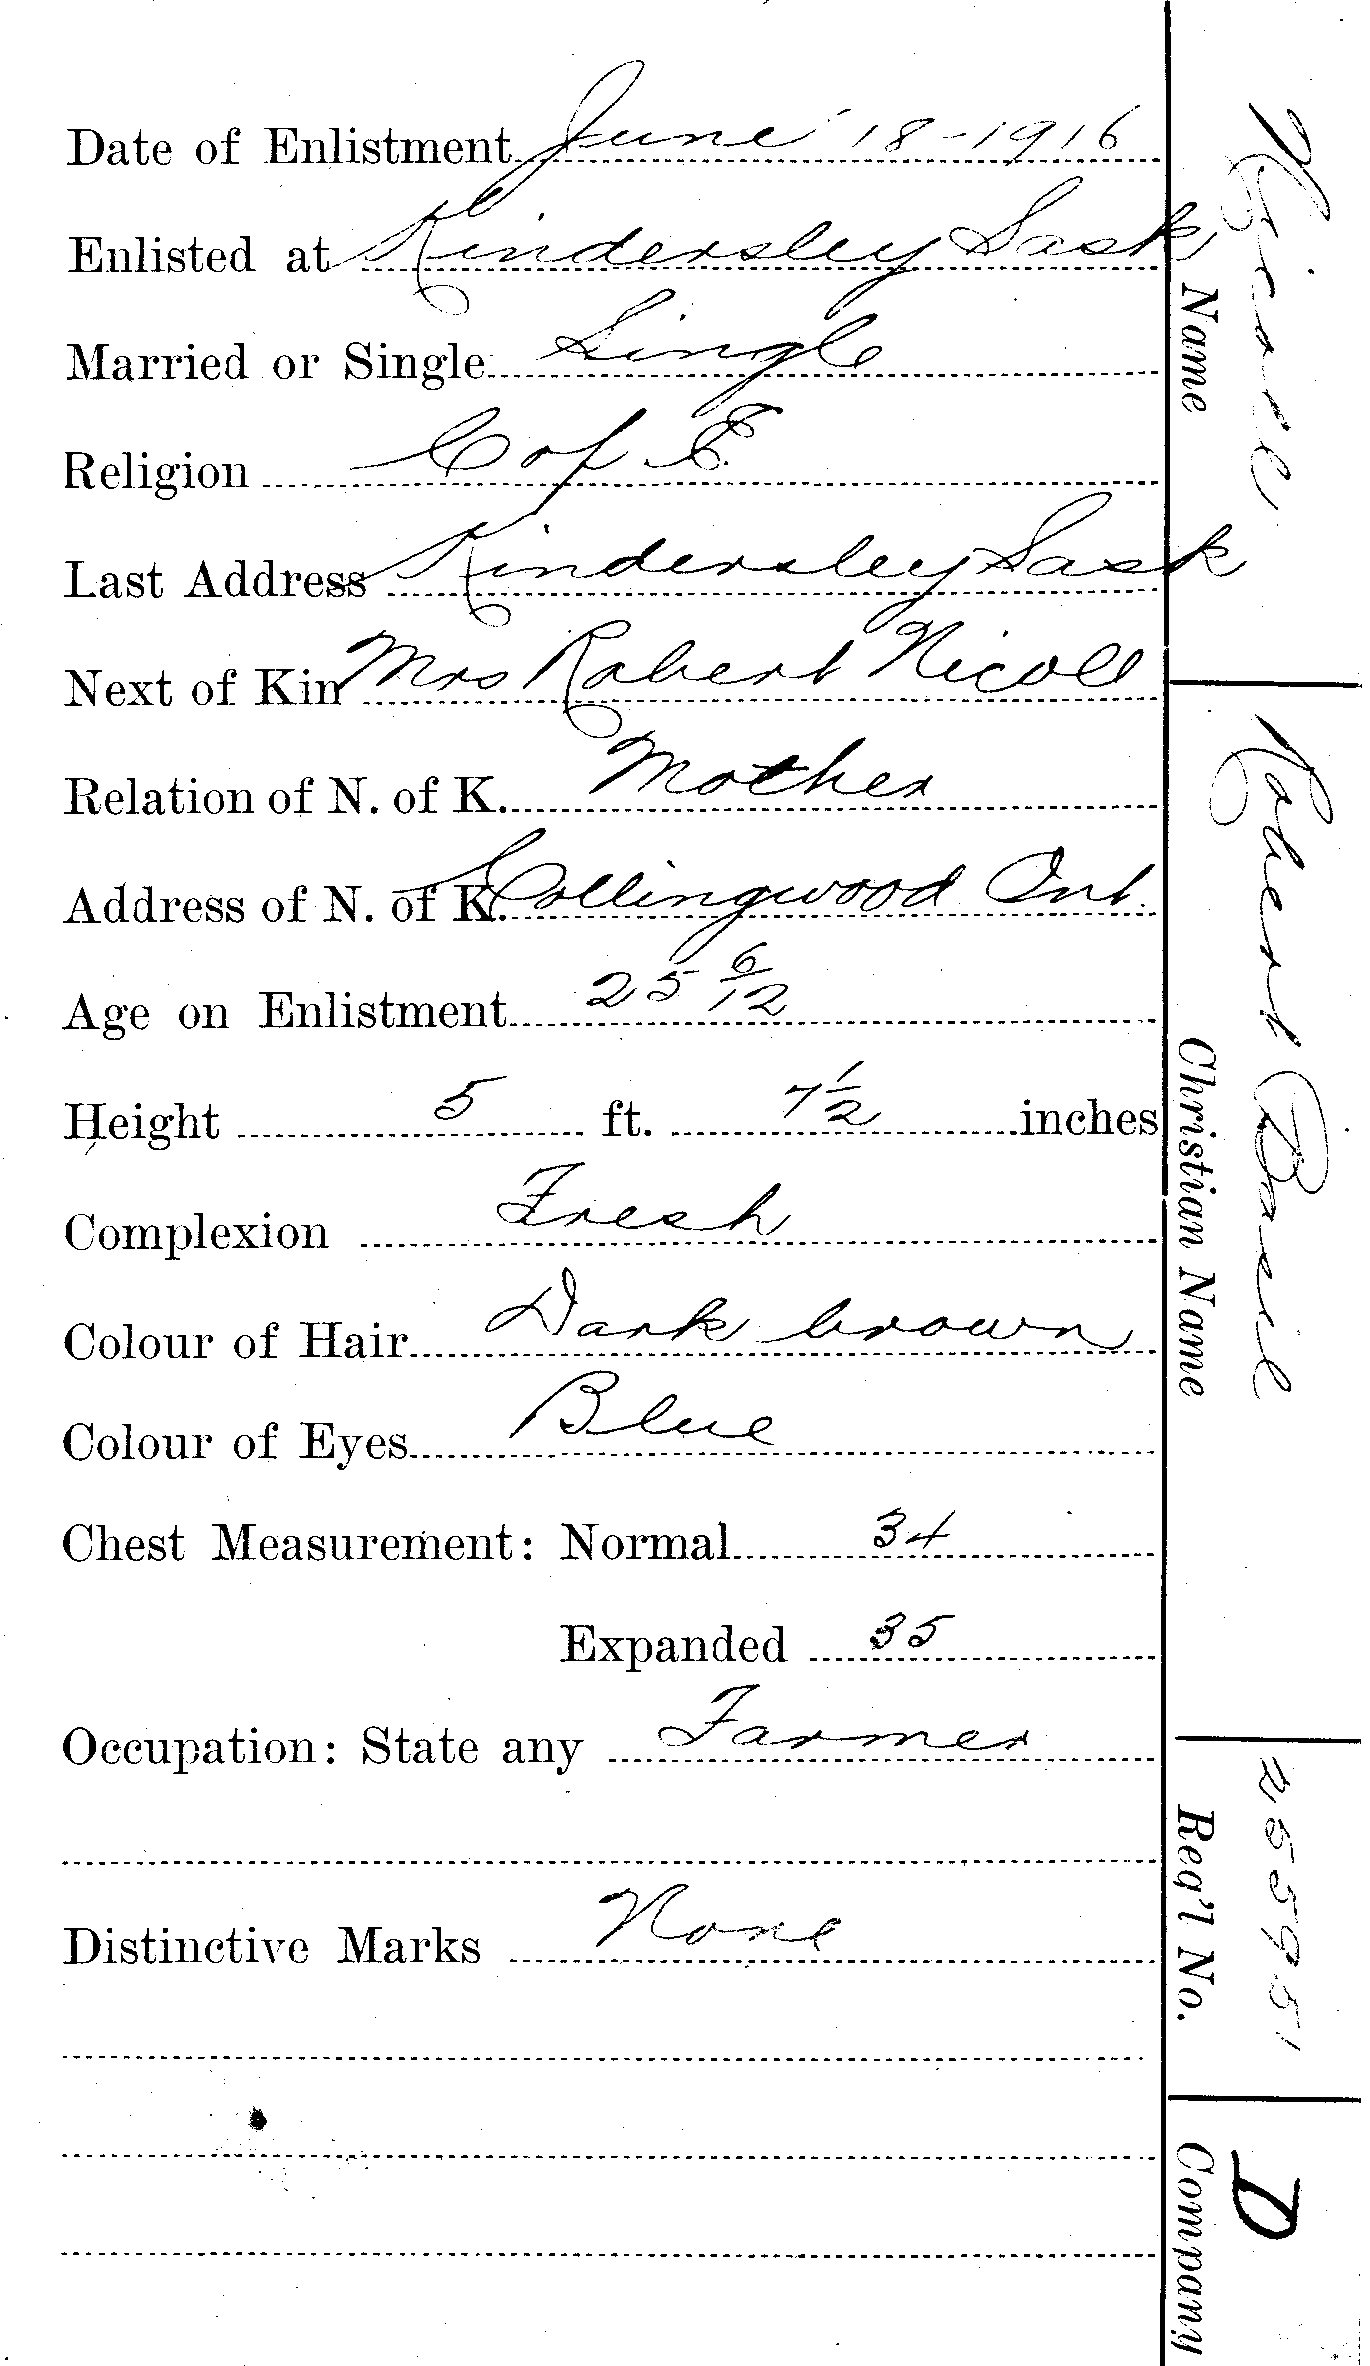 Date of Enlistment June 18-1916
Enlisted at Kindersley Sask
Married or Single Single
Religion C of E.
Last Address Kindersley Sask
Next of Kin Mrs Robert Nicoll
Relation of N. of K. Mother
Address of N. of K. Collingwood Ont.
Age on Enlistment 25 6/12
Height 5 ft. 7 1/2 inches
Complexion Fresh
Colour of Hair Dark brown
Colour of Eyes Blue
Chest Measurement: Normal 34
Expanded 35
Occupation: State any Farmer
Distinctive Marks None
Nicoll
Name
Robert Basil
Christian Name
255951
Reg'l No.
D
Company